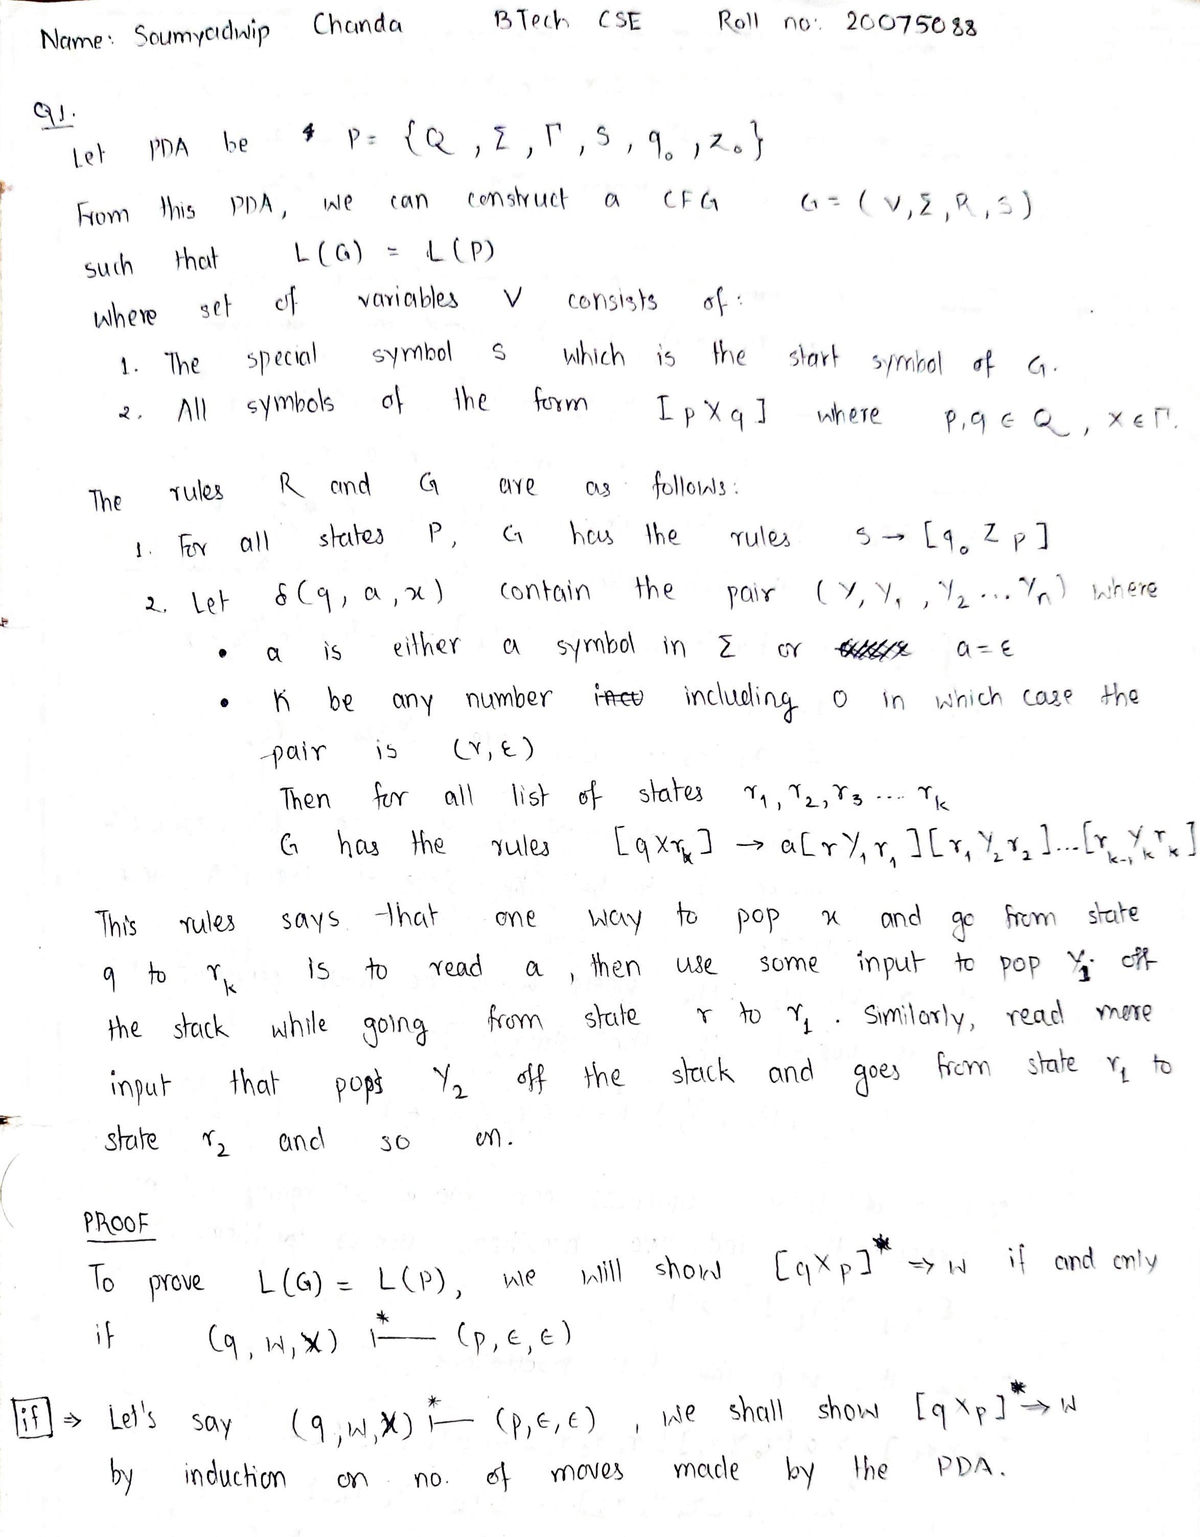 Name: Soumyadwip Chanda BTech CSE Roll no: 20075088
Q1.
Let PDA be P = {Q, Σ, Γ, S, q₀, z₀}
From this PDA, we can construct a CFG G = (V, Σ, R, S)
such that L(G) = L(P)
where set of variables V consists of:
1. The special symbol S which is the start symbol of G.
2. All symbols of the form [pXq] where p,q ∈ Q, X ∈ Γ.
The rules R and G are as follows:
1. For all states P, G has the rules S → [q₀ Z p]
2. Let δ(q, a, x) contain the pair (Y, Y₁, Y₂ ... Yₙ) where
• a is either a symbol in Σ or a = ε
• K be any number including 0 in which case the
pair is (r, ε)
Then for all list of states r₁, r₂, r₃ .... rₖ
G has the rules [qXrₖ] → a[rY₁r₁][r₁Y₂r₂]...[rₖ₋₁Yₖrₖ]
This rules says that one way to pop x and go from state
q to rₖ is to read a, then use some input to pop Y₁ off
the stack while going from state r to r₁. Similarly, read more
input that pops Y₂ off the stack and goes from state r₁ to
state r₂ and so on.
PROOF
To prove L(G) = L(P), we will show [qXp]* ⇒ w if and only
if (q, w, X) ⊢* (p, ε, ε)
if ⇒ Let's say (q, w, X) ⊢* (p, ε, ε), we shall show [qXp] *⇒ w
by induction on no. of moves made by the PDA.